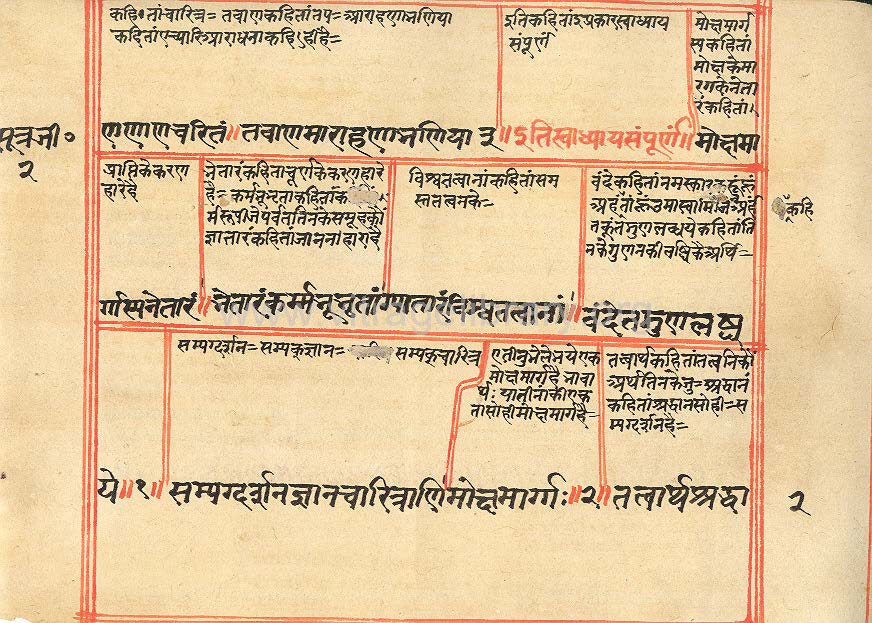 कहि तां चारित्र = तवाण कहितां तप = आराहणा भणिया
कहितां ए च्यारि आराधना कहि है =
इति कहितां इ प्रकार स्वाध्याय
संपूर्ण
मोक्षमार्ग
स्य कहितां
मोक्ष के मा
रग के नेता
रं कहितां
सूत्रजी०
२
णाण चरितं॥ तवाणमाराहणा भणिया ३॥ इति स्वाध्याय संपूर्ण॥ मोक्षमा
प्राप्ति कै करण
हारे है
भेतारं कहितां चूर्ण के करणहारे
है = कर्मभूभृतां कहितां क
र्म रूपी जे पर्वत तिनके समूह को
ज्ञातारं कहितां जाननाहारा है
विश्वतत्वानां कहितां सम
स्त तत्वनके =
वंदे कहितां नमस्कार
अर्हत
त कूं ते गुण लब्धये कहितां ति
नके गुणन की लब्धि के अर्थि =
कहि
र्गस्य नेतारं॥ भेतारं कर्म्मभूभृतां ग्यातारं विश्वतत्वानां॥ वंदे तद्गुणलब्ध
www.jainpglibrary.org
सम्यग्दर्शन = सम्यक्ज्ञान = सम्यक्चारित्र
ए तीनु मेले भये एक
मोक्षमार्ग है भावा
र्थः या तीनां की एक
ता सो ही मोक्षमार्ग है =
तत्वार्थ कहितां तत्वनि को
अर्थ तिनके जु = श्रद्धानं
कहितां श्रद्धान सो ही = स
म्यग्दर्शन है =
ये॥१॥ सम्यग्दर्शनज्ञानचारित्राणि मोक्षमार्ग्गः॥२॥ तत्वार्थश्रद्धा
२